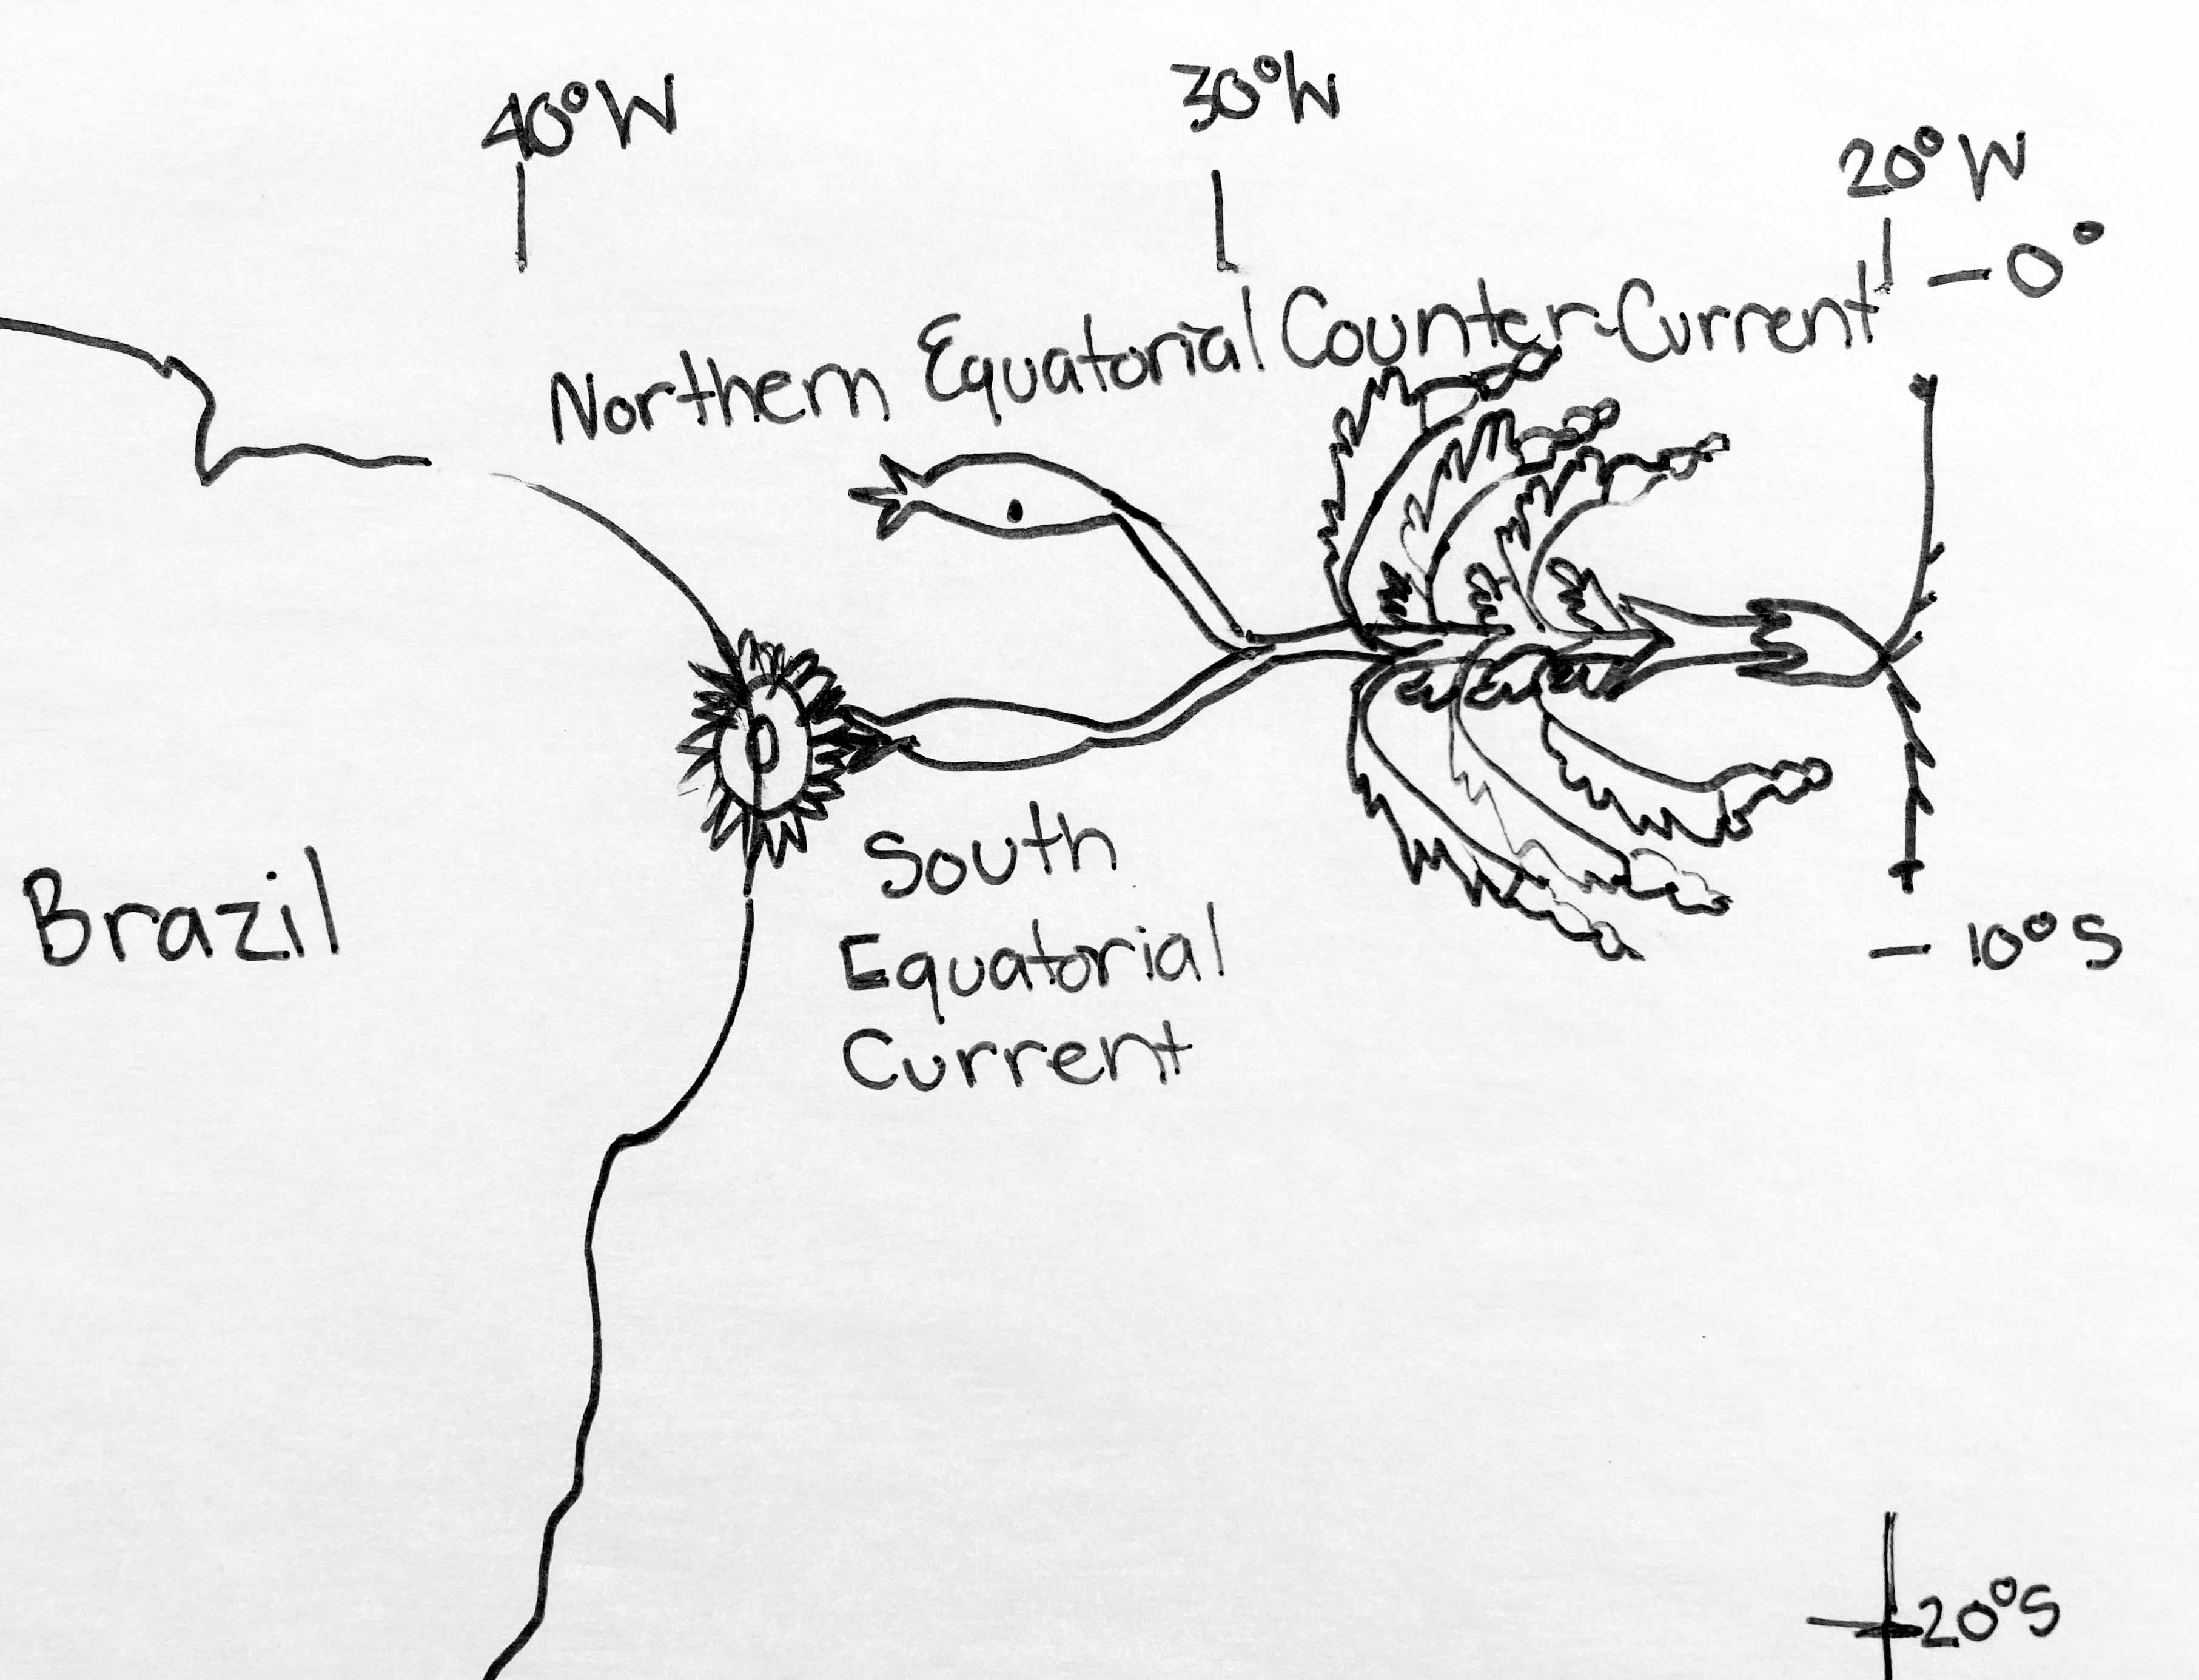 40°W
30°W
20°W
0°
Northern Equatorial Counter-Current
South
Equatorial
Current
Brazil
10°S
20°S